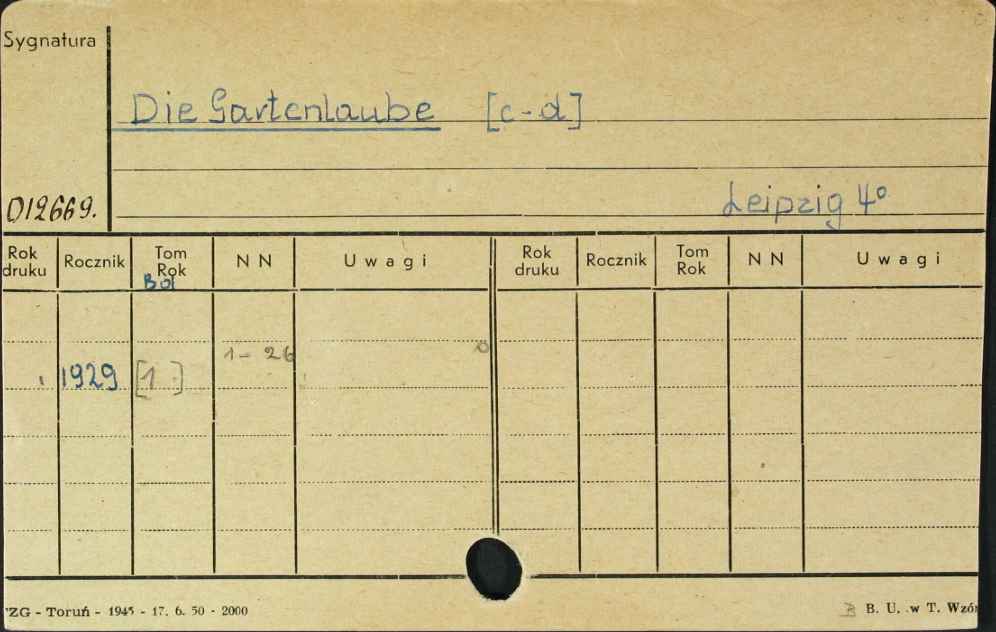 Sygnatura
Die Gartenlaube [c-d]
012669.
Leipzig 4°
Rok druku Rocznik Tom Rok NN Uwagi Rok druku Rocznik Tom Rok NN Uwagi
Bd
1929 [1 ] 1-26
ZG - Toruń - 1945 - 17. 6. 50 - 2000
B. U. w T. Wzór